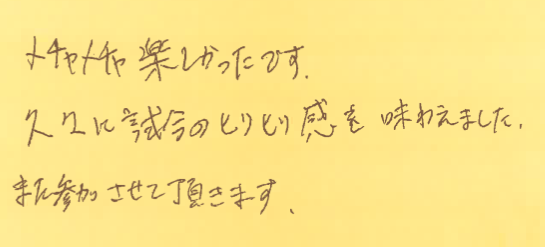 メチャメチャ楽しかったです.
久々に試合のヒリヒリ感を味わえました.
また参加させて頂きます.